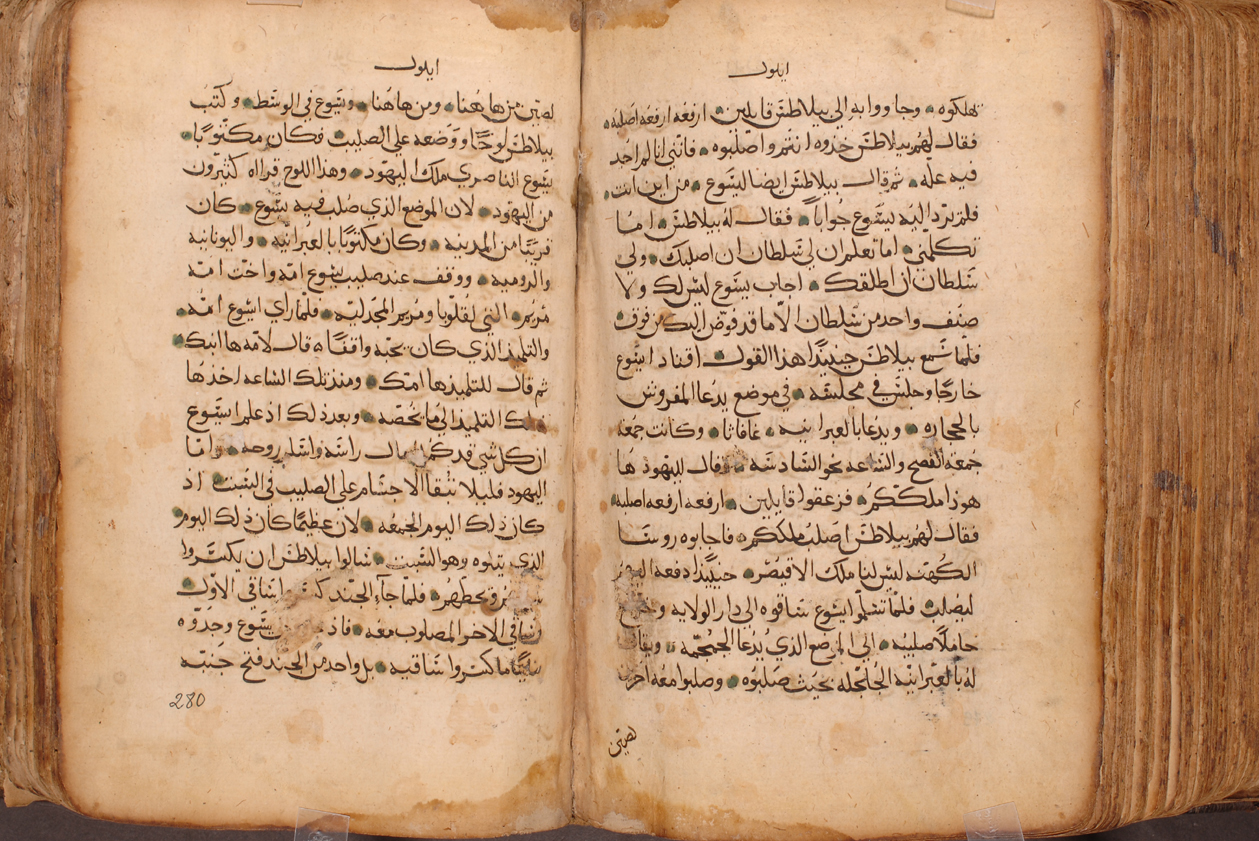 ايلول
تهلكوه وجاووا به الي بيلاطس قايلين ارفعه ارفعه اصلبه
فقال لهم بيلاطس خدوه انتم واصلبوه فانني انا لم اجد
فيه عله ثم قال بيلاطس ايضا ليشوع من اين انت
فلم يرد اليه يشوع جوابا فقال له بيلاطس اما
تكلمني اما تعلم ان لي سلطان ان اصلبك ولي
سلطان ان اطلقك اجاب يسوع ليس لك ولا
صنف واحد من سلطان الا ما قد فوض اليك من فوق
فلما سمع بيلاطس حينيدا هذا القول اقتاد ايشوع
خارجا وجلس في مجلسه في موضع يدعا المفروش
بالحجاره ويدعا بالعبرانيه غافاثا وكانت جمعة
جمعة الفصح والساعه نحو السادسه فقال لليهود ها
هوذا ملككم فزعقوا قايلين ارفعه ارفعه اصلبه
فقال لهم بيلاطس اصلب ملككم فاجابوه روسا
الكهنه ليس لنا ملك الا قيصر حينيذا دفعه اليهم
ليصلب فلما تسلموا ايشوع ساقوه الي دار الولايه وخرج
حاملا صليبه الي الموضع الذي يدعا الجمجمه ويقال
له بالعبرانيه الجلجله بحيث صلبوه وصلبوا معه اخرين
لصين
ايلول
لصين من هاهنا ومن هاهنا ويشوع في الوسط وكتب
بيلاطس لوحا ووضعه علي الصليب فكان مكتوبا
يشوع الناصري ملك اليهود وهذا اللوح قراه كثيرون
من اليهود لان الموضع الذي صلب فيه يشوع كان
قريبا من المدينه وكان مكتوبا بالعبرانيه واليونانيه
والروميه ووقف عند صليب يشوع امه واخت امه
مريم التي لقلوبا ومريم المجدليه فلما راي ايشوع امه
والتلميذ الذي كان يحبه واقفا قال لامه ها ابنك
ثم قال للتلميذ ها امك ومنذ تلك الساعه اخذها
ذلك التلميذ الي ما يخصه وبعد ذلك اذ علم ايشوع
ان كل شي قد كمل امال راسه واسلم روحه واما
اليهود فليلا تبقا الاجسام علي الصليب في السبت اذ
كان ذلك اليوم الجمعه لان عظيما كان ذلك اليوم
الذي يتلوه وهو السبت سالوا بيلاطس ان يكسروا
وتحطهم فلما جاء الجند ساقي الاول
وساقي الاخر المصلوب معه يشوع وجدوه
ما كسروا ساقيه بل واحد من الجند فتح جنبه
280